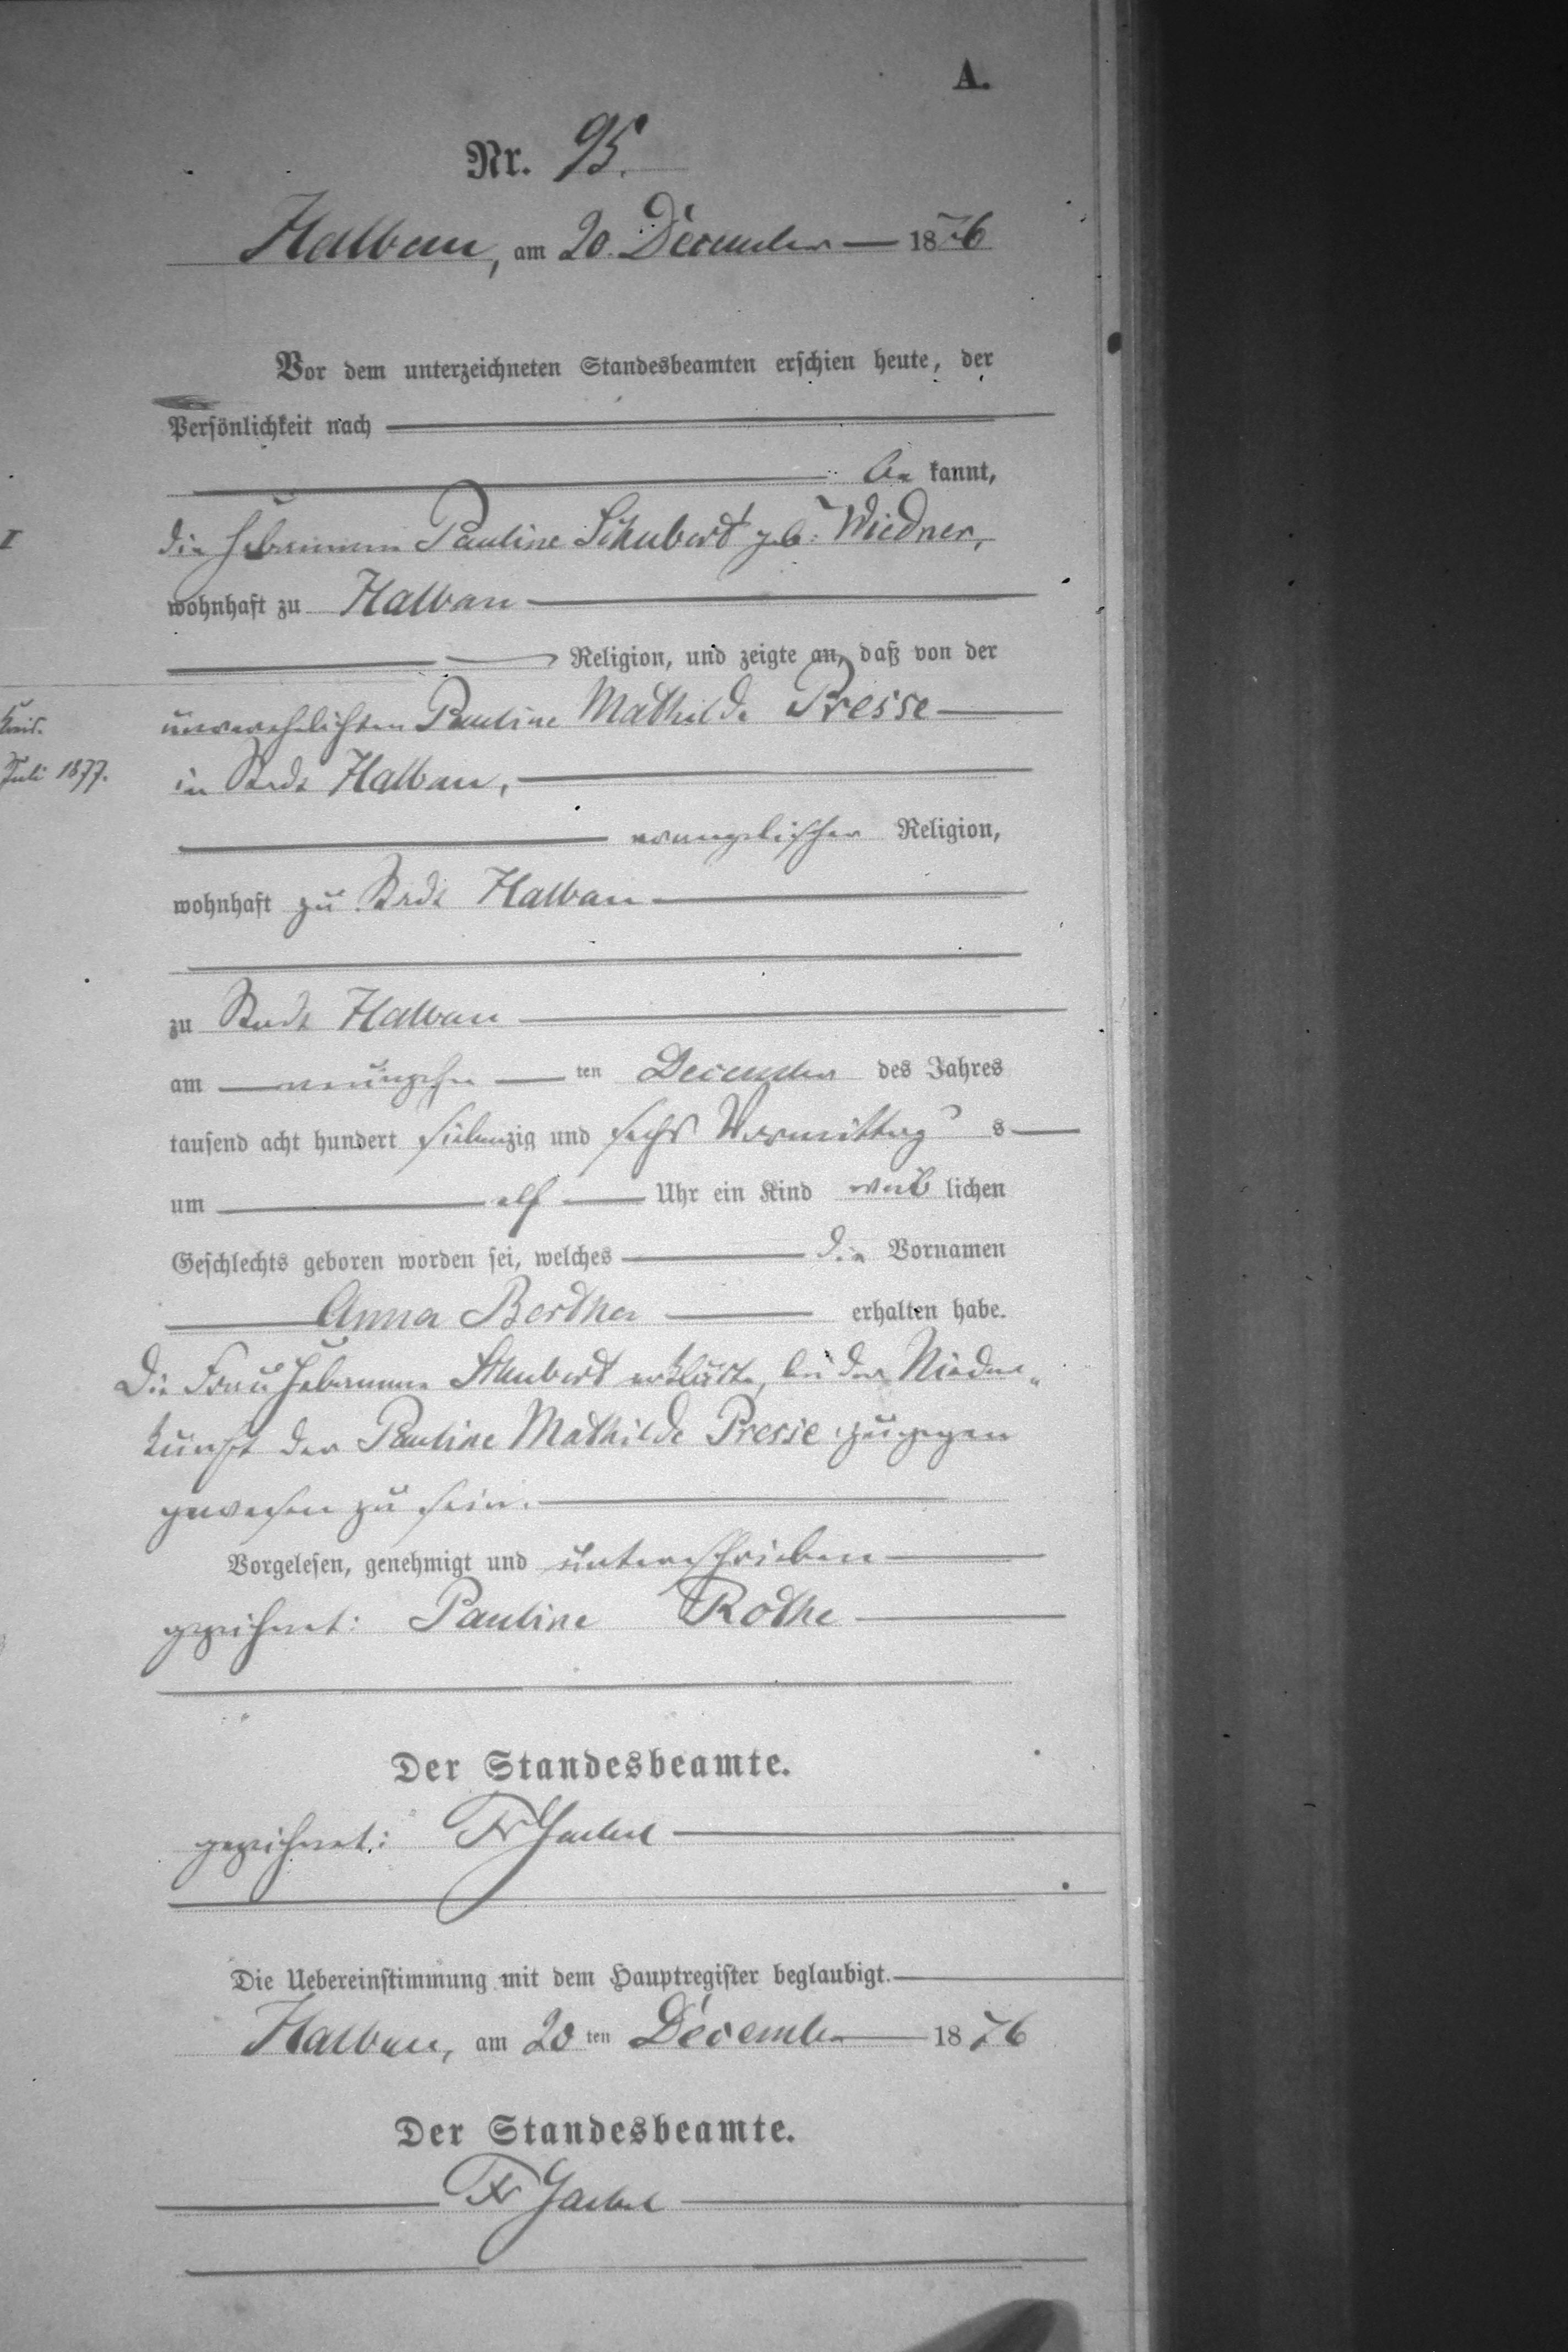 A.
Nr. 95.
Halbau, am 20. December 1876
Vor dem unterzeichneten Standesbeamten erschien heute, der
Persönlichkeit nach
be kannt,
die Hebamme Pauline Schubert geb. Wiedner,
wohnhaft zu Halbau
Religion, und zeigte an, daß von der
I
unverehelichten Pauline Mathilde Presse
in Stadt Halbau,
Juli 1877.
evangelischer Religion,
wohnhaft zu Stadt Halbau
zu Stadt Halbau
am neunzehn ten December des Jahres
tausend acht hundert siebenzig und sechs Vormittag s
um elf Uhr ein Kind weib lichen
Geschlechts geboren worden sei, welches die Vornamen
Anna Bertha erhalten habe.
Die Frau Hebamme Schubert erklärte, bei der Nieder„
kunft der Pauline Mathilde Presse zugegen
gewesen zu sein.
Vorgelesen, genehmigt und unterschrieben
gezeichnet: Pauline Rothe
Der Standesbeamte.
gezeichnet: Fr
Die Uebereinstimmung mit dem Hauptregister beglaubigt.
Halbau, am 20 ten December 1876
Der Standesbeamte.
Fr